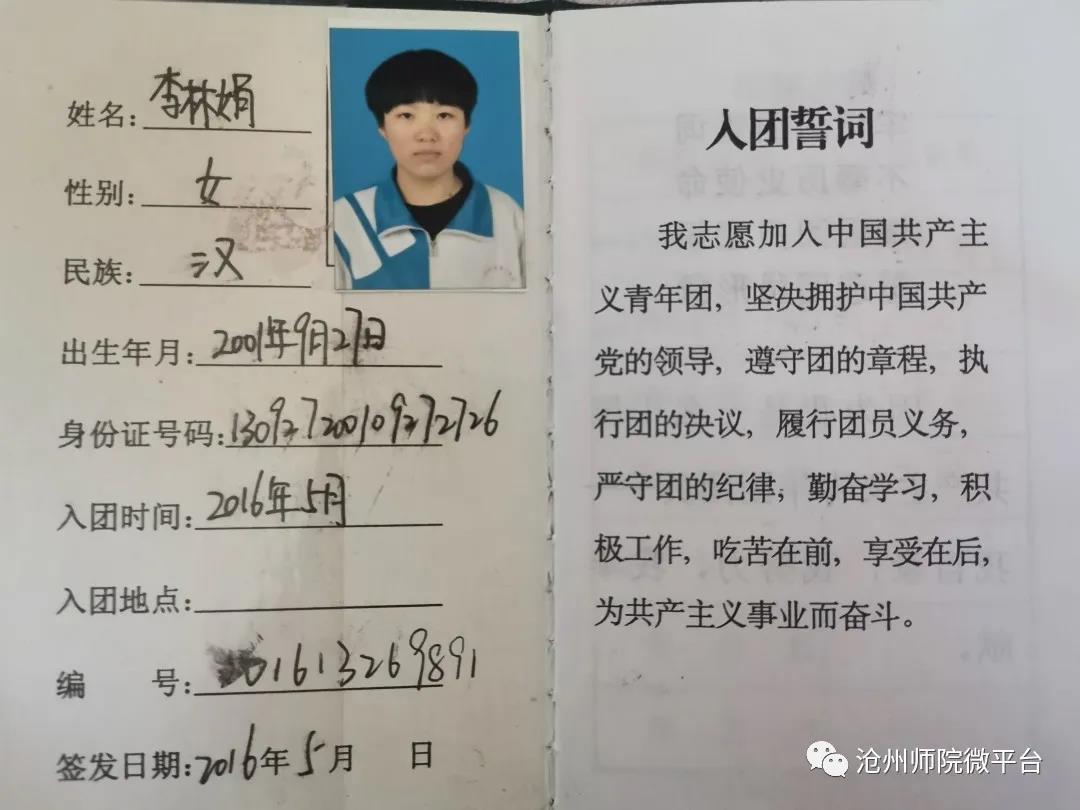 姓名:李林娟
性别:女
民族:汉
出生年月:2001年9月27日
身份证号码:130927200109272726
入团时间:2016年5月
入团地点:
编 号:201613269891
签发日期:2016年5月 日
入团誓词
我志愿加入中国共产主
义青年团，坚决拥护中国共产
党的领导，遵守团的章程，执
行团的决议，履行团员义务，
严守团的纪律，勤奋学习，积
极工作，吃苦在前，享受在后，
为共产主义事业而奋斗。
沧州师院微平台